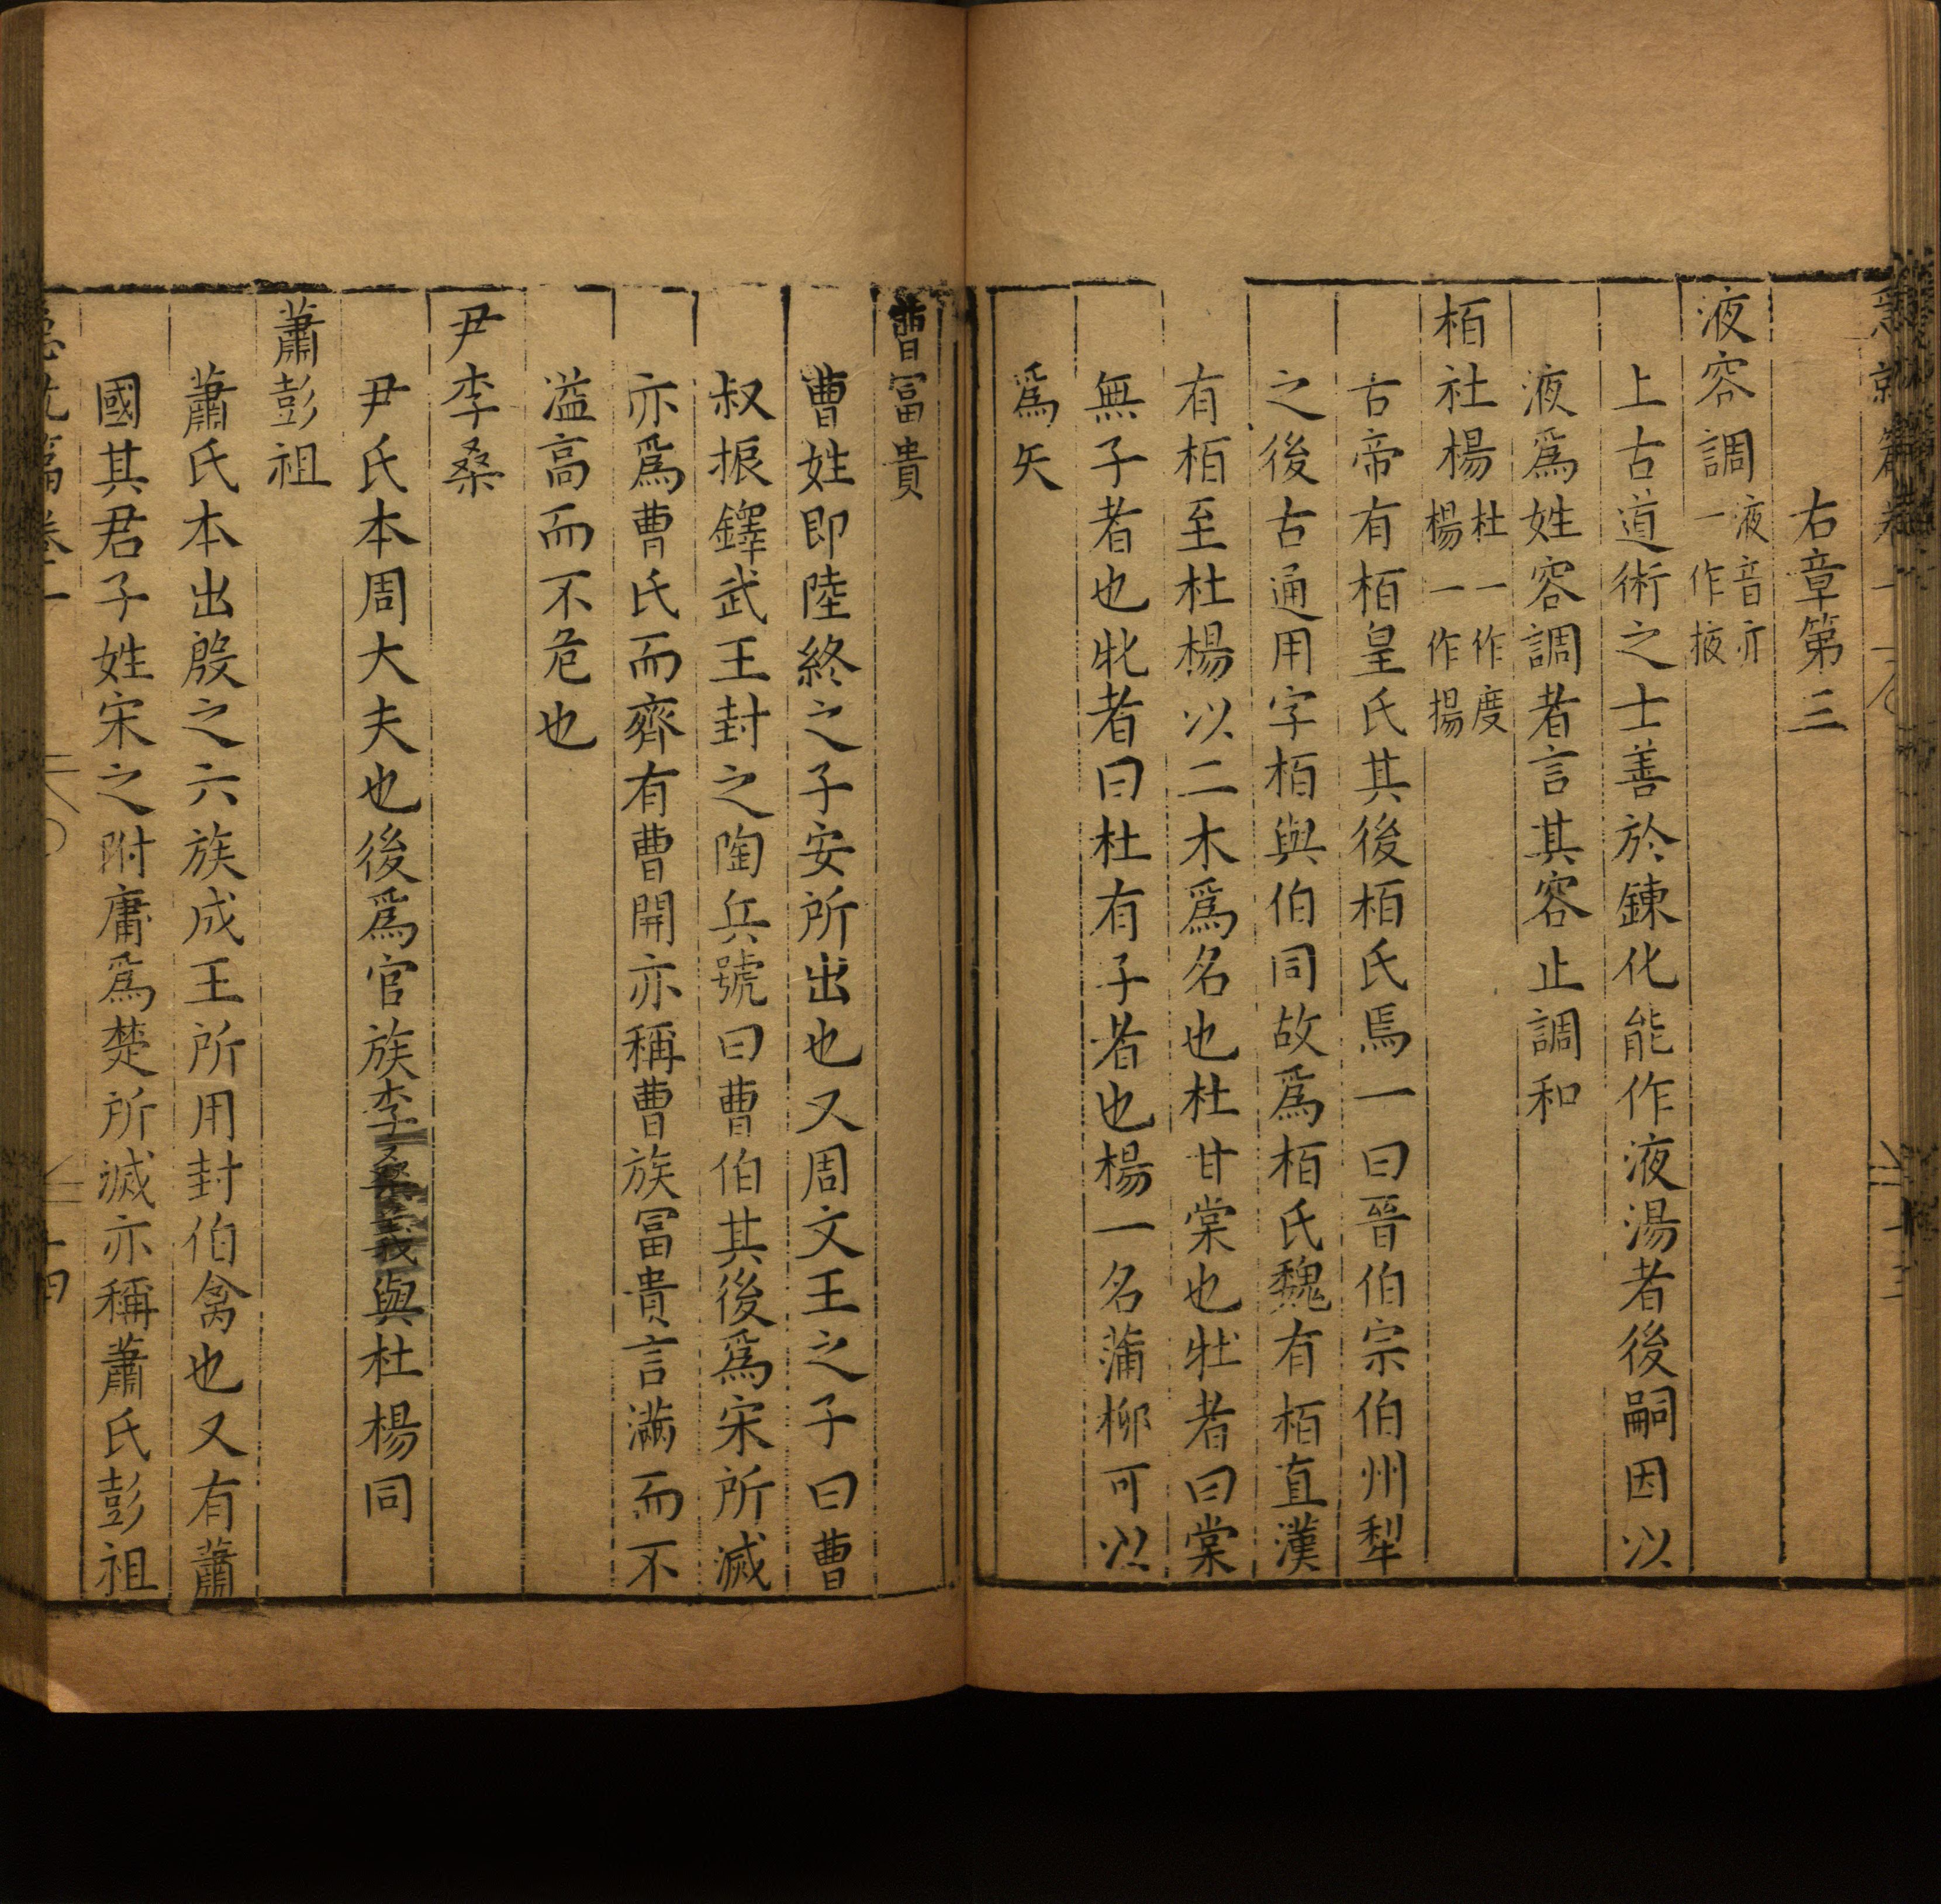 急就篇卷一
右章第三
液容調液音亦一作掖
上古道術之士善於鍊化能作液湯者後嗣因以
液爲姓容調者言其容止調和
栢杜楊杜一作度楊一作揚
古帝有栢皇氏其後栢氏焉一曰晉伯宗伯州犁
之後古通用字栢與伯同故爲栢氏魏有栢直漢
有栢至杜楊以二木爲名也杜甘棠也牡者曰棠
無子者也牝者曰杜有子者也楊一名蒲栁可以
爲矢
曹冨貴
曹姓即陸終之子安所出也又周文王之子曰曹
叔振鐸武王封之陶丘號曰曹伯其後爲宋所滅
亦爲曹氏而齊有曹開亦稱曹族冨貴言滿而不
溢高而不危也
尹李桑
尹氏本周大夫也後爲官族李桑義與杜楊同
蕭彭祖
蕭氏本出殷之六族成王所用封伯禽也又有蕭
國其君子姓宋之附庸爲楚所滅亦稱蕭氏彭祖
急就篇卷一